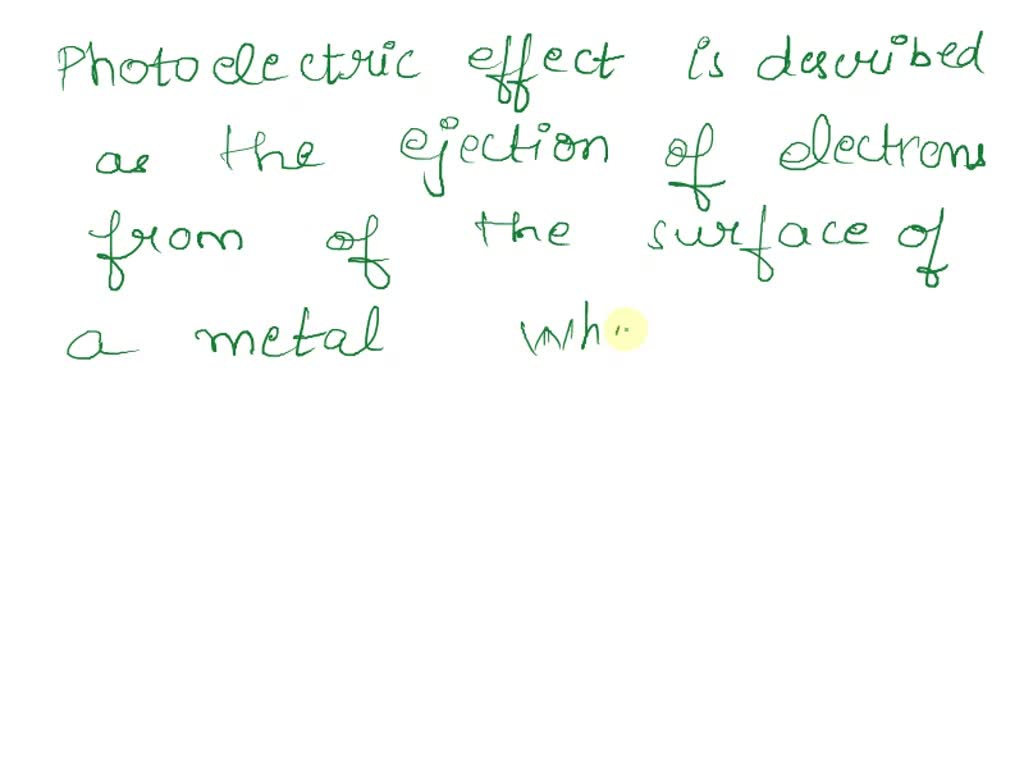 Photoelectric effect is described
as the ejection of electrons
from of the surface of
a metal whi